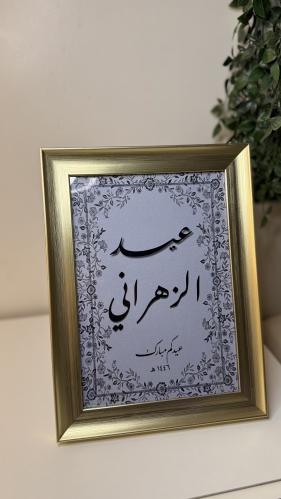 عيد
الزهراني
عيدكم مبارك
١٤٤٦ هـ